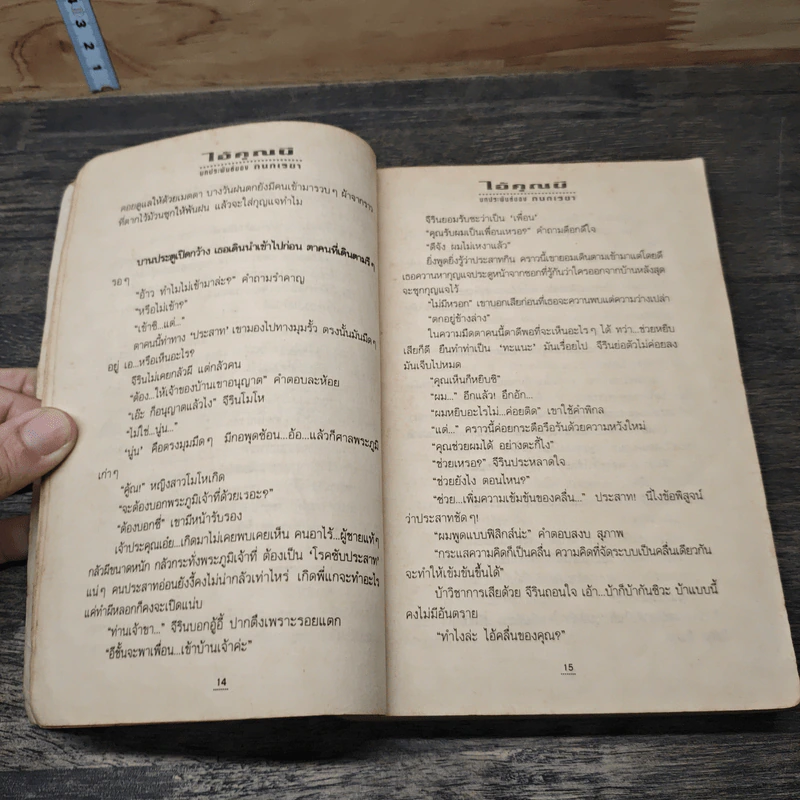 4
3
2
1
ไอ้คุณผี
บทประพันธ์ของ กนกเรขา
คอยดูแลให้ด้วยเมตตา บางวันฝนตกยังมีคนเข้ามารวบๆ ผ้าจากราว
ที่ตากไว้ม้วนซุกให้พ้นฝน แล้วจะใส่กุญแจทำไม
บานประตูเปิดกว้าง เธอเดินนำเข้าไปก่อน ตาคนที่เดินตามรีๆ
รอๆ
“อ้าว ทำไมไม่เข้ามาล่ะ?” คำถามรำคาญ
“หรือไม่เข้า?”
“เข้าซิ...แต่...”
ตาคนนี้ท่าทาง ‘ประสาท’ เขามองไปทางมุมรั้ว ตรงนั้นมันมืดๆ
อยู่ เอ...หรือเห็นอะไร?
จีรินไม่เคยกลัวผี แต่กลัวคน
“ต้อง...ให้เจ้าของบ้านเขาอนุญาต” คำตอบละห้อย
“เอ๊ะ ก็อนุญาตแล้วไง” จีรินโมโห
“ไม่ใช่...นู่น...”
‘นู่น’ คือตรงมุมมืดๆ มีกอพุดซ้อน...อ้อ...แล้วก็ศาลพระภูมิ
เก่าๆ
“คู้ณ!” หญิงสาวโมโหเกิด
“จะต้องบอกพระภูมิเจ้าที่ด้วยเรอะ?”
“ต้องบอกซี่” เขามีหน้ารับรอง
เจ้าประคุณเอ๋ย...เกิดมาไม่เคยพบเคยเห็น คนอาไร้...ผู้ชายแท้ๆ
กลัวผีขนาดหนัก กลัวกระทั่งพระภูมิเจ้าที่ ต้องเป็น ‘โรคซับประสาท’
แน่ๆ คนประสาทอ่อนยังงี้คงไม่น่ากลัวเท่าไหร่ เกิดพี่แกจะทำอะไร
แค่ทำผีหลอกก็คงจะเปิดแน่บ
“ท่านเจ้าขา...” จีรินบอกอู้อี้ ปากตึงเพราะรอยแตก
“อีชั้นจะพาเพื่อน...เข้าบ้านเจ้าค่ะ”
14
ไอ้คุณผี
บทประพันธ์ของ กนกเรขา
จีรินยอมรับซะว่าเป็น ‘เพื่อน’
“คุณรับผมเป็นเพื่อนเหรอ?” คำถามดีอกดีใจ
“ดีจัง ผมไม่เหงาแล้ว”
ยิ่งพูดยิ่งรู้ว่าประสาทกิน คราวนี้เขายอมเดินตามเข้ามาแต่โดยดี
เธอควานหากุญแจประตูหน้าจากซอกที่รู้กันว่าใครออกจากบ้านหลังสุด
จะซุกกุญแจไว้
“ไม่มีหรอก” เขาบอกเสียก่อนที่เธอจะควานพบแต่ความว่างเปล่า
“ตกอยู่ข้างล่าง”
ในความมืดตาคนนี้ตาดีพอที่จะเห็นอะไรๆ ได้ ทว่า...ช่วยหยิบ
เสียก็ดี ยืนทำท่าเป็น ‘ทะแนะ’ มันเรื่อยไป จีรินย่อตัวไม่ค่อยลง
มันเจ็บไปหมด
“คุณเห็นก็หยิบซิ”
“ผม...” อีกแล้ว! อึกอัก...
“ผมหยิบอะไรไม่...ค่อยติด” เขาใช้คำพิกล
“แต่...” คราวนี้ค่อยกระตือรือร้นด้วยความหวังใหม่
“คุณช่วยผมได้ อย่างตะกี้ไง”
“ช่วยเหรอ? จีรินประหลาดใจ
“ช่วยยังไง ตอนไหน?”
“ช่วย...เพิ่มความเข้มข้นของคลื่น...” ประสาท! นี่ไงข้อพิสูจน์
ว่าประสาทชัดๆ!
“ผมพูดแบบฟิสิกส์น่ะ” คำตอบสงบ สุภาพ
“กระแสความคิดก็เป็นคลื่น ความคิดที่จัดระบบเป็นคลื่นเดียวกัน
จะทำให้เข้มข้นขึ้นได้”
บ้าวิชาการเสียด้วย จีรินถอนใจ เอ้า...บ้าก็บ้ากันซิวะ บ้าแบบนี้
คงไม่มีอันตราย
“ทำไงล่ะ ไอ้คลื่นของคุณ?”
15